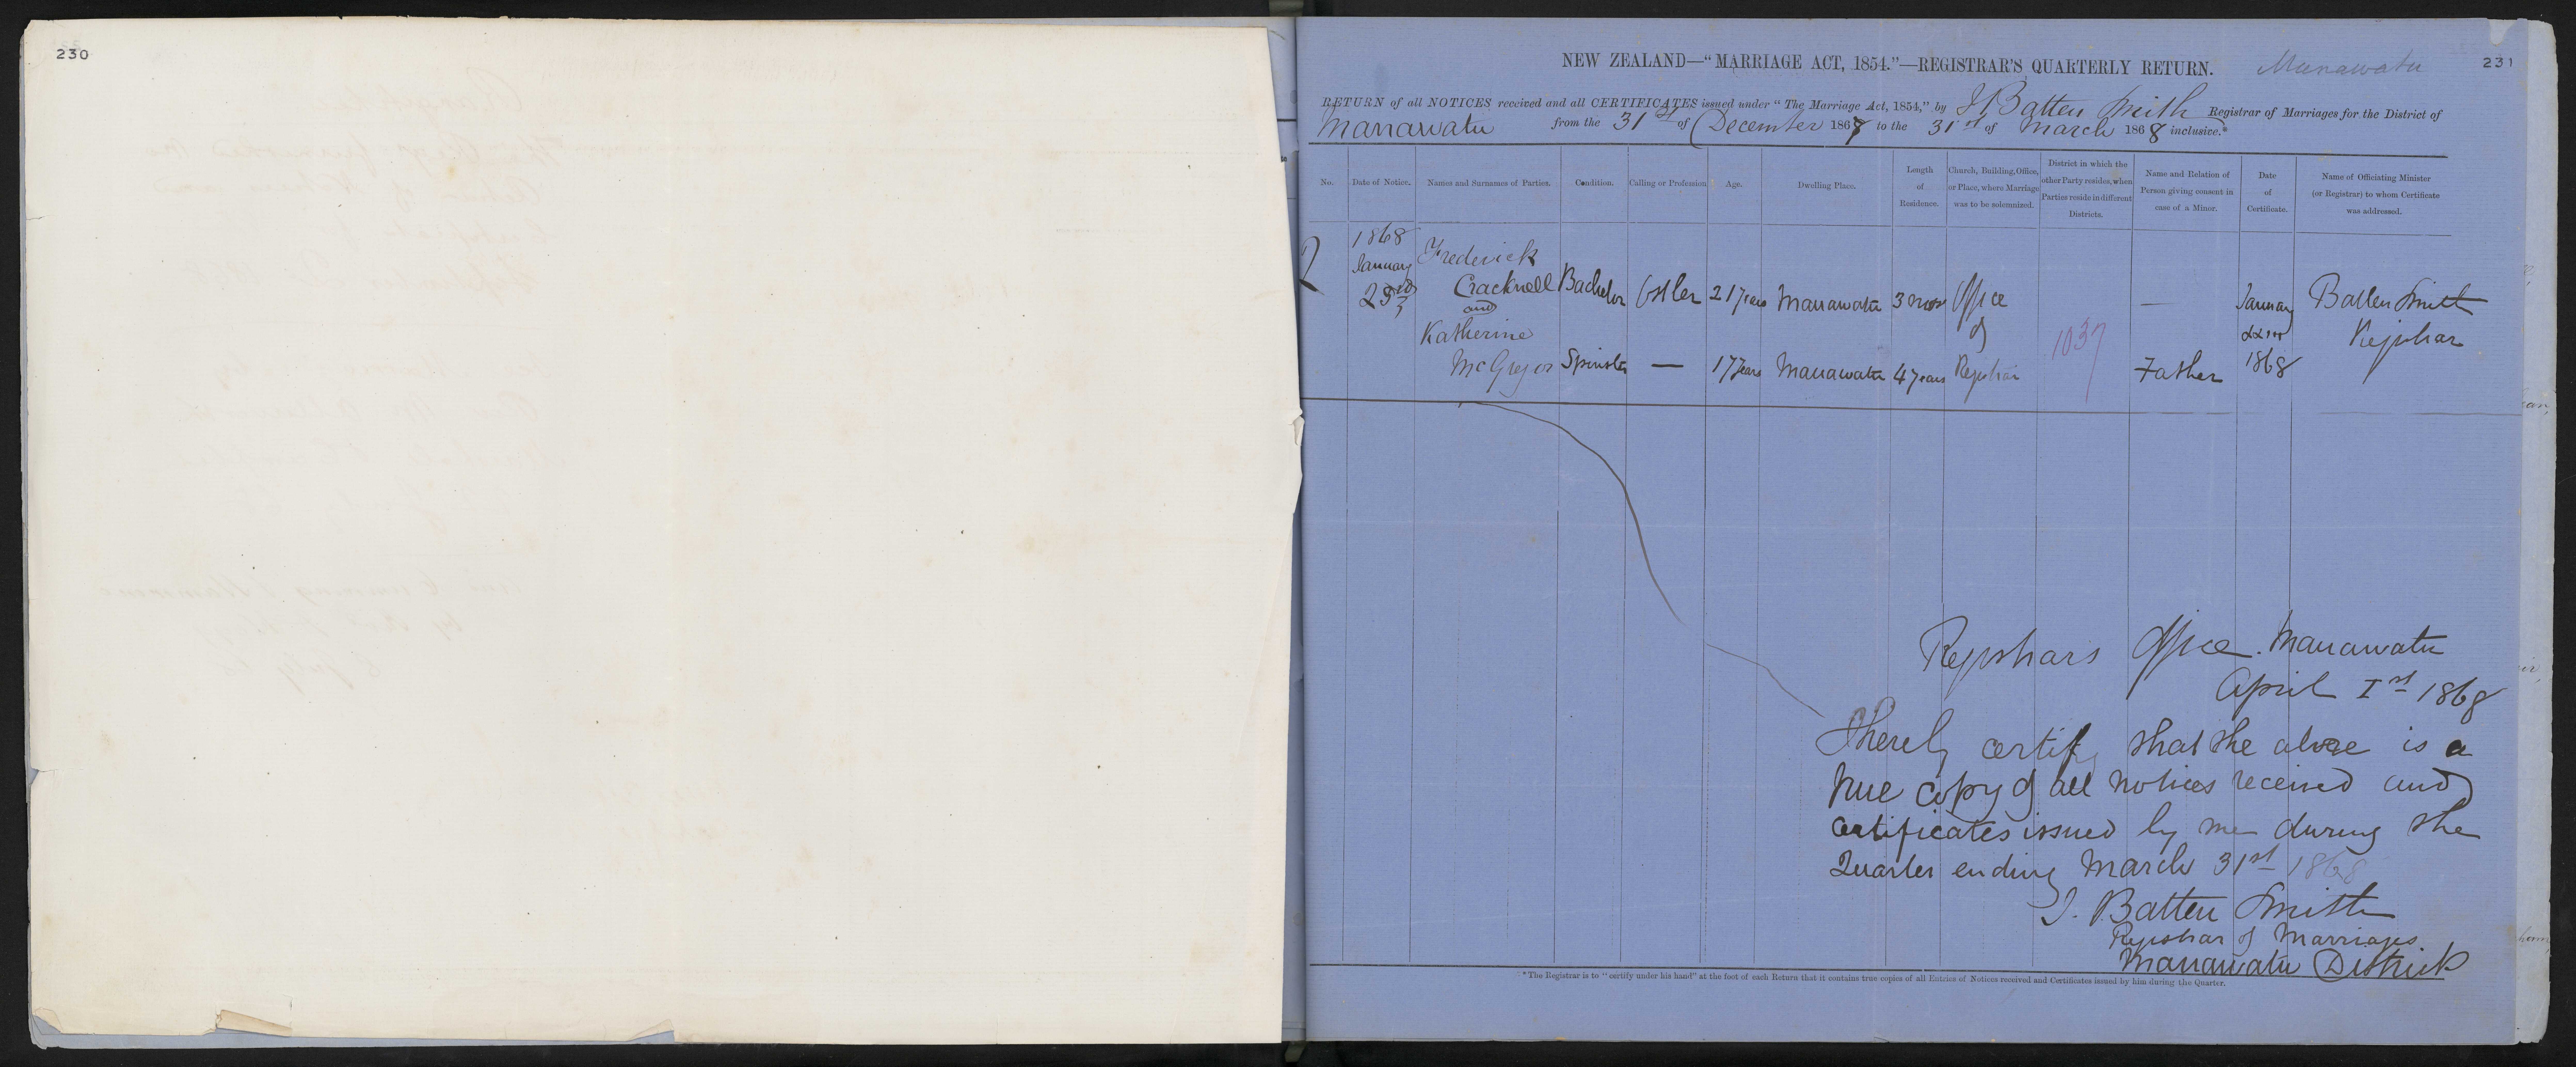 230
NEW ZEALAND—"MARRIAGE ACT, 1854."—REGISTRAR'S QUARTERLY RETURN.
Manawatu
231
RETURN of all NOTICES received and all CERTIFICATES issued under "The Marriage Act, 1854," by J Batten Smith Registrar of Marriages for the District of
Manawatu from the 31st of December 1867 to the 31st of March 1868 inclusive.*
No.
Date of Notice.
Names and Surnames of Parties.
Condition.
Calling or Profession
Age.
Dwelling Place.
Length of Residence.
Church, Building, Office, or Place, where Marriage was to be solemnized.
District in which the other Party resides, when Parties reside in different Districts.
Name and Relation of Person giving consent in case of a Minor.
Date of Certificate.
Name of Officiating Minister (or Registrar) to whom Certificate was addressed.
2
1868
January
23rd
Frederick
Cracknell Bachelor Ostler 21 years Manawatu 3 mos Office — January Batten Smith
and
of
22nd Registrar
Katherine
1037
McGregor Spinster — 17 years Manawatu 4 years Registrar Father 1868
Registrars Office. Manawatu
April 1st 1868
I hereby certify that the above is a
true copy of all notices received and
certificates issued by me during the
Quarter ending March 31st 1868
J. Batten Smith
Registrar of Marriages
Manawatu District
*The Registrar is to "certify under his hand" at the foot of each Return that it contains true copies of all Entries of Notices received and Certificates issued by him during the Quarter.